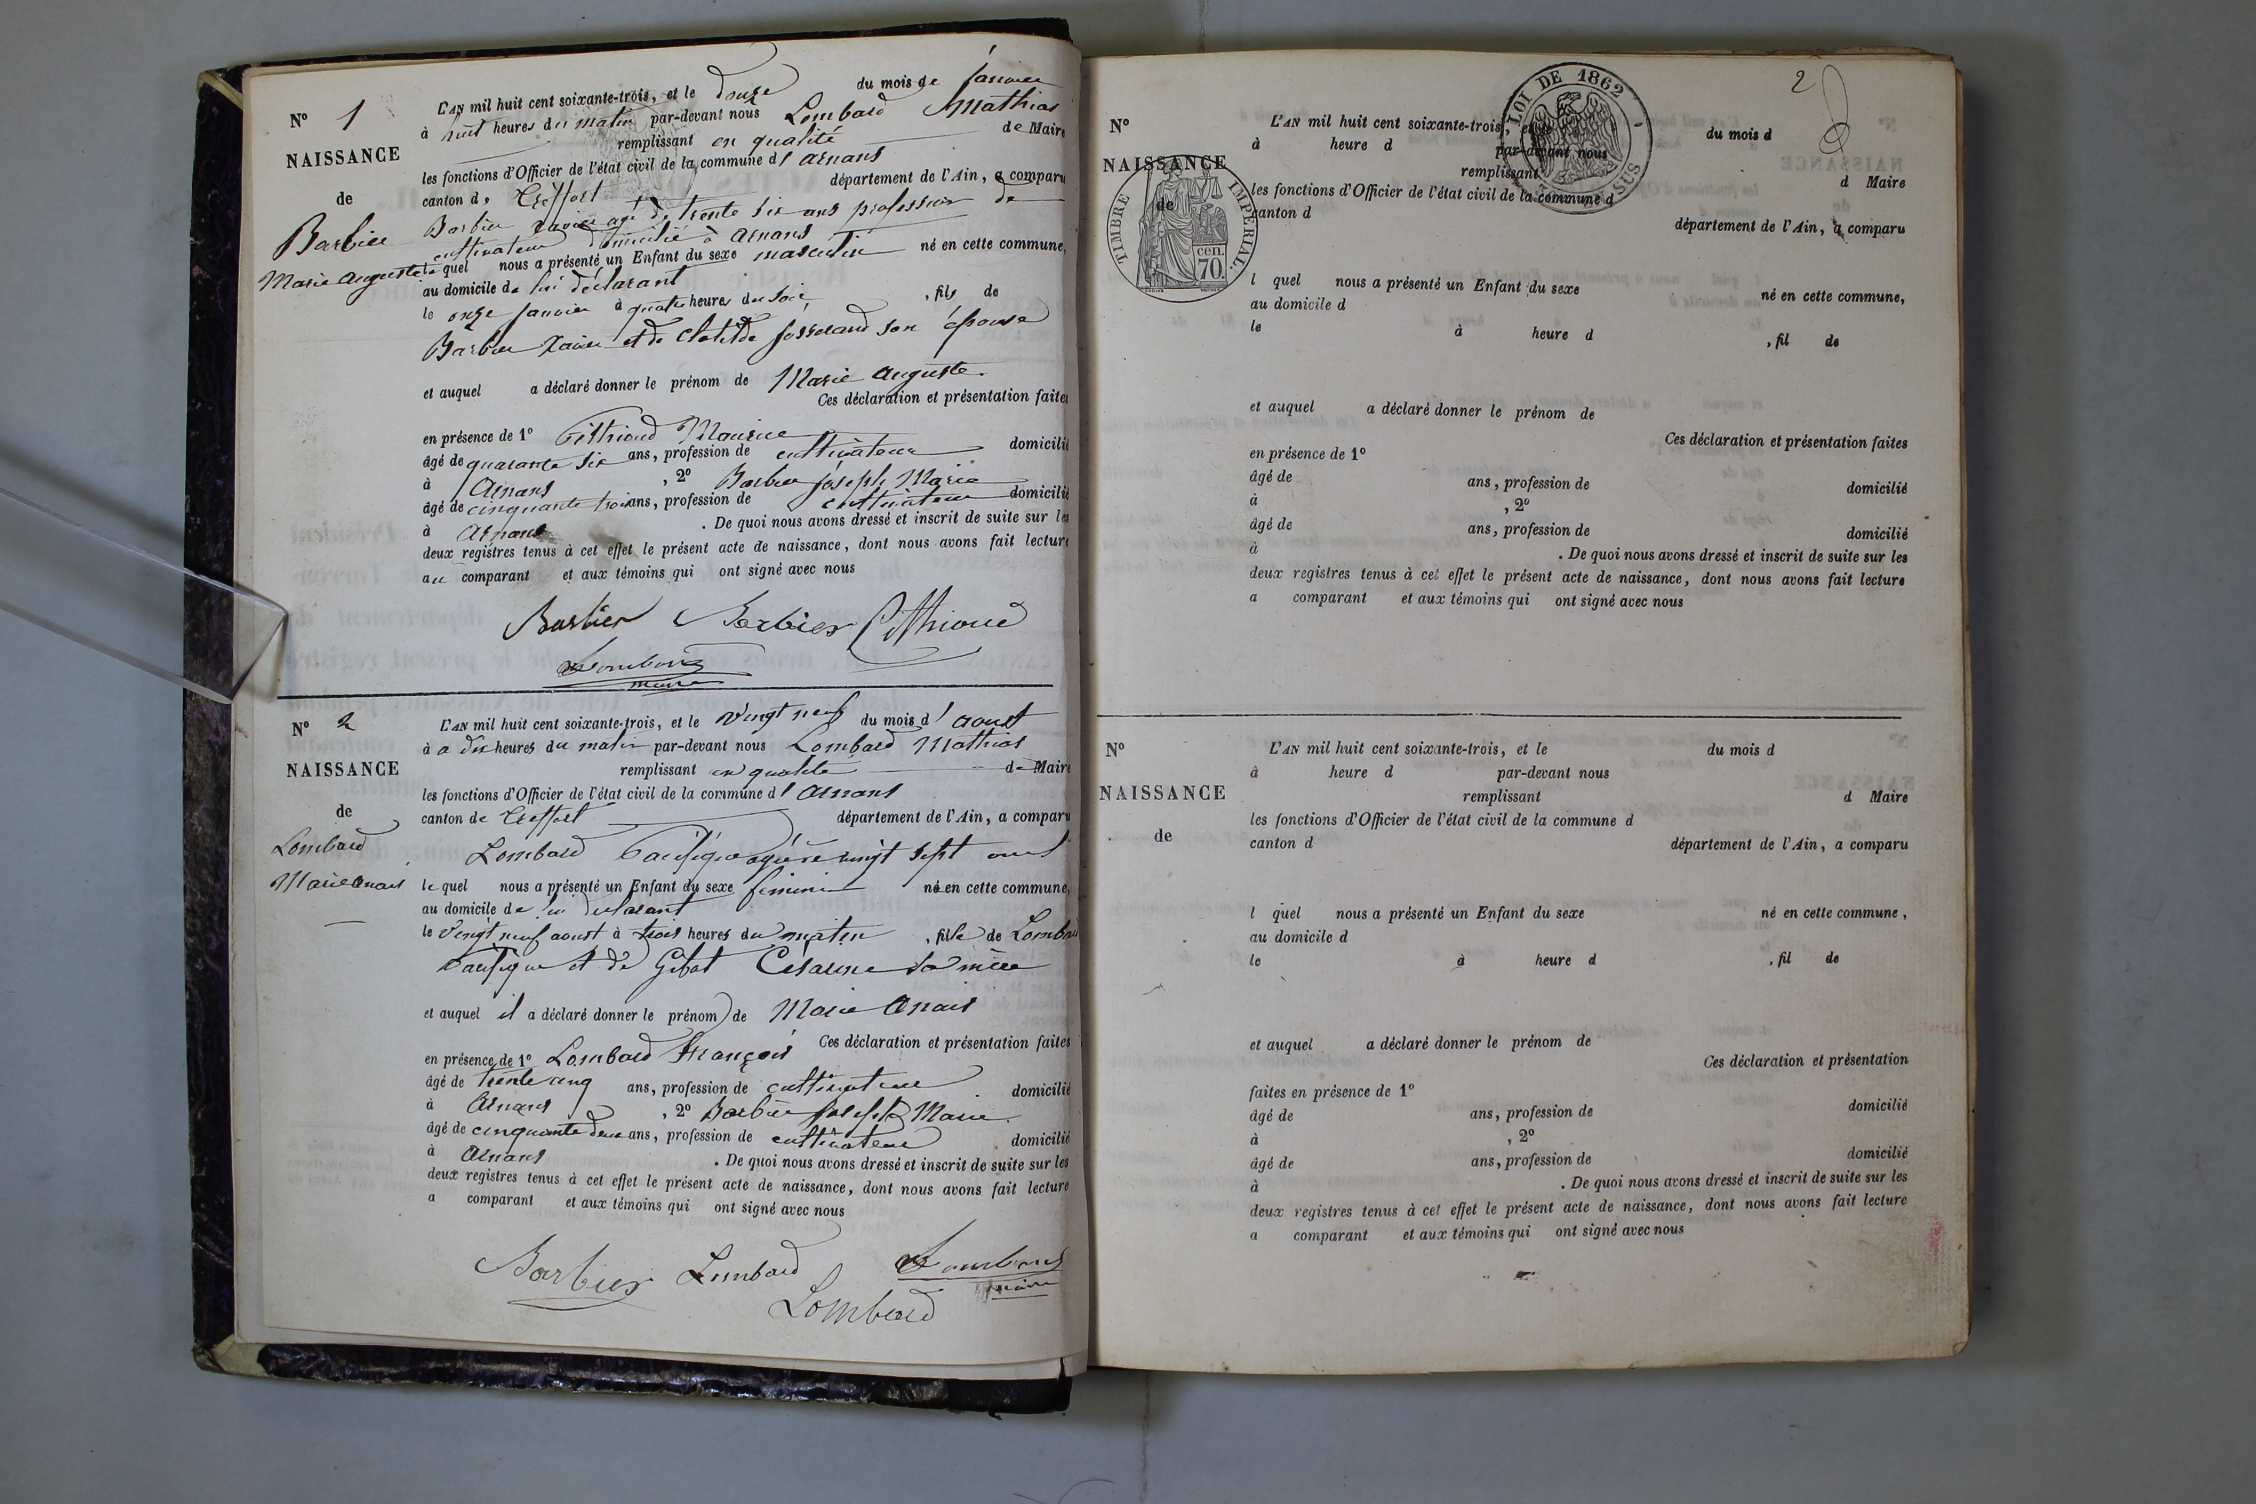 N° 1
NAISSANCE
de
Barbier
Marie Auguste
L'AN mil huit cent soixante-trois, et le douze du mois de janvier
à huit heures du matin par-devant nous Lombard Mathias
remplissant en qualité de Maire
les fonctions d'Officier de l'état civil de la commune d' Arnans
canton de Treffort département de l'Ain, a comparu
Barbier Xavier agé de trente six ans profession de
cultivateur domicilié à Arnans
lequel nous a présenté un Enfant du sexe masculin né en cette commune,
au domicile de lui déclarant
le onze janvier à quatre heures du soir, fils de
Barbier Xavier et de Clotilde Josserand son épouse
et auquel a déclaré donner le prénom de Marie Auguste.
Ces déclaration et présentation faites
en présence de 1° Maurice
âgé de quarante six ans, profession de cultivateur domicilié
à Arnans, 2° Barbier Joseph Marie
âgé de cinquante trois ans, profession de cultivateur domicilié
à Arnans. De quoi nous avons dressé et inscrit de suite sur les
deux registres tenus à cet effet le présent acte de naissance, dont nous avons fait lecture
au comparant et aux témoins qui ont signé avec nous
Barbier Barbier
Lombard
maire
N° 2
NAISSANCE
de
Lombard
Marie Anais
L'AN mil huit cent soixante-trois, et le vingt neuf du mois d' aoust
à a dix heures du matin par-devant nous Lombard Mathias
remplissant en qualité de Maire
les fonctions d'Officier de l'état civil de la commune d' Arnans
canton de Treffort département de l'Ain, a comparu
Lombard Pacifique agé de vingt sept ans
lequel nous a présenté un Enfant du sexe féminin né en cette commune,
au domicile de lui déclarant
le vingt neuf aoust à trois heures du matin, fille de Lombard
Pacifique et de Gibot Césarine sa mère
et auquel il a déclaré donner le prénom de Marie Anais
Ces déclaration et présentation faites
en présence de 1° Lombard François
âgé de trente cinq ans, profession de cultivateur domicilié
à Arnans, 2° Barbier Joseph Marie.
âgé de cinquante deux ans, profession de cultivateur domicilié
à Arnans. De quoi nous avons dressé et inscrit de suite sur les
deux registres tenus à cet effet le présent acte de naissance, dont nous avons fait lecture
a comparant et aux témoins qui ont signé avec nous
Barbier Lombard Lombard
maire
Lombard
2
LOI DE 1862
SUS
TIMBRE IMPÉRIAL.
cen.
70.
N°
NAISSANCE
de
L'AN mil huit cent soixante-trois, et le du mois d
à heure d par-devant nous
remplissant d Maire
les fonctions d'Officier de l'état civil de la commune d
canton d département de l'Ain, a comparu
l quel nous a présenté un Enfant du sexe né en cette commune,
au domicile d
le à heure d, fil de
et auquel a déclaré donner le prénom de
Ces déclaration et présentation faites
en présence de 1°
âgé de ans, profession de domicilié
à, 2°
âgé de ans, profession de domicilié
à. De quoi nous avons dressé et inscrit de suite sur les
deux registres tenus à cet effet le présent acte de naissance, dont nous avons fait lecture
a comparant et aux témoins qui ont signé avec nous
N°
NAISSANCE
de
L'AN mil huit cent soixante-trois, et le du mois d
à heure d par-devant nous
remplissant d Maire
les fonctions d'Officier de l'état civil de la commune d
canton d département de l'Ain, a comparu
l quel nous a présenté un Enfant du sexe né en cette commune,
au domicile d
le à heure d, fil de
et auquel a déclaré donner le prénom de
Ces déclaration et présentation
faites en présence de 1°
âgé de ans, profession de domicilié
à, 2°
âgé de ans, profession de domicilié
à. De quoi nous avons dressé et inscrit de suite sur les
deux registres tenus à cet effet le présent acte de naissance, dont nous avons fait lecture
a comparant et aux témoins qui ont signé avec nous